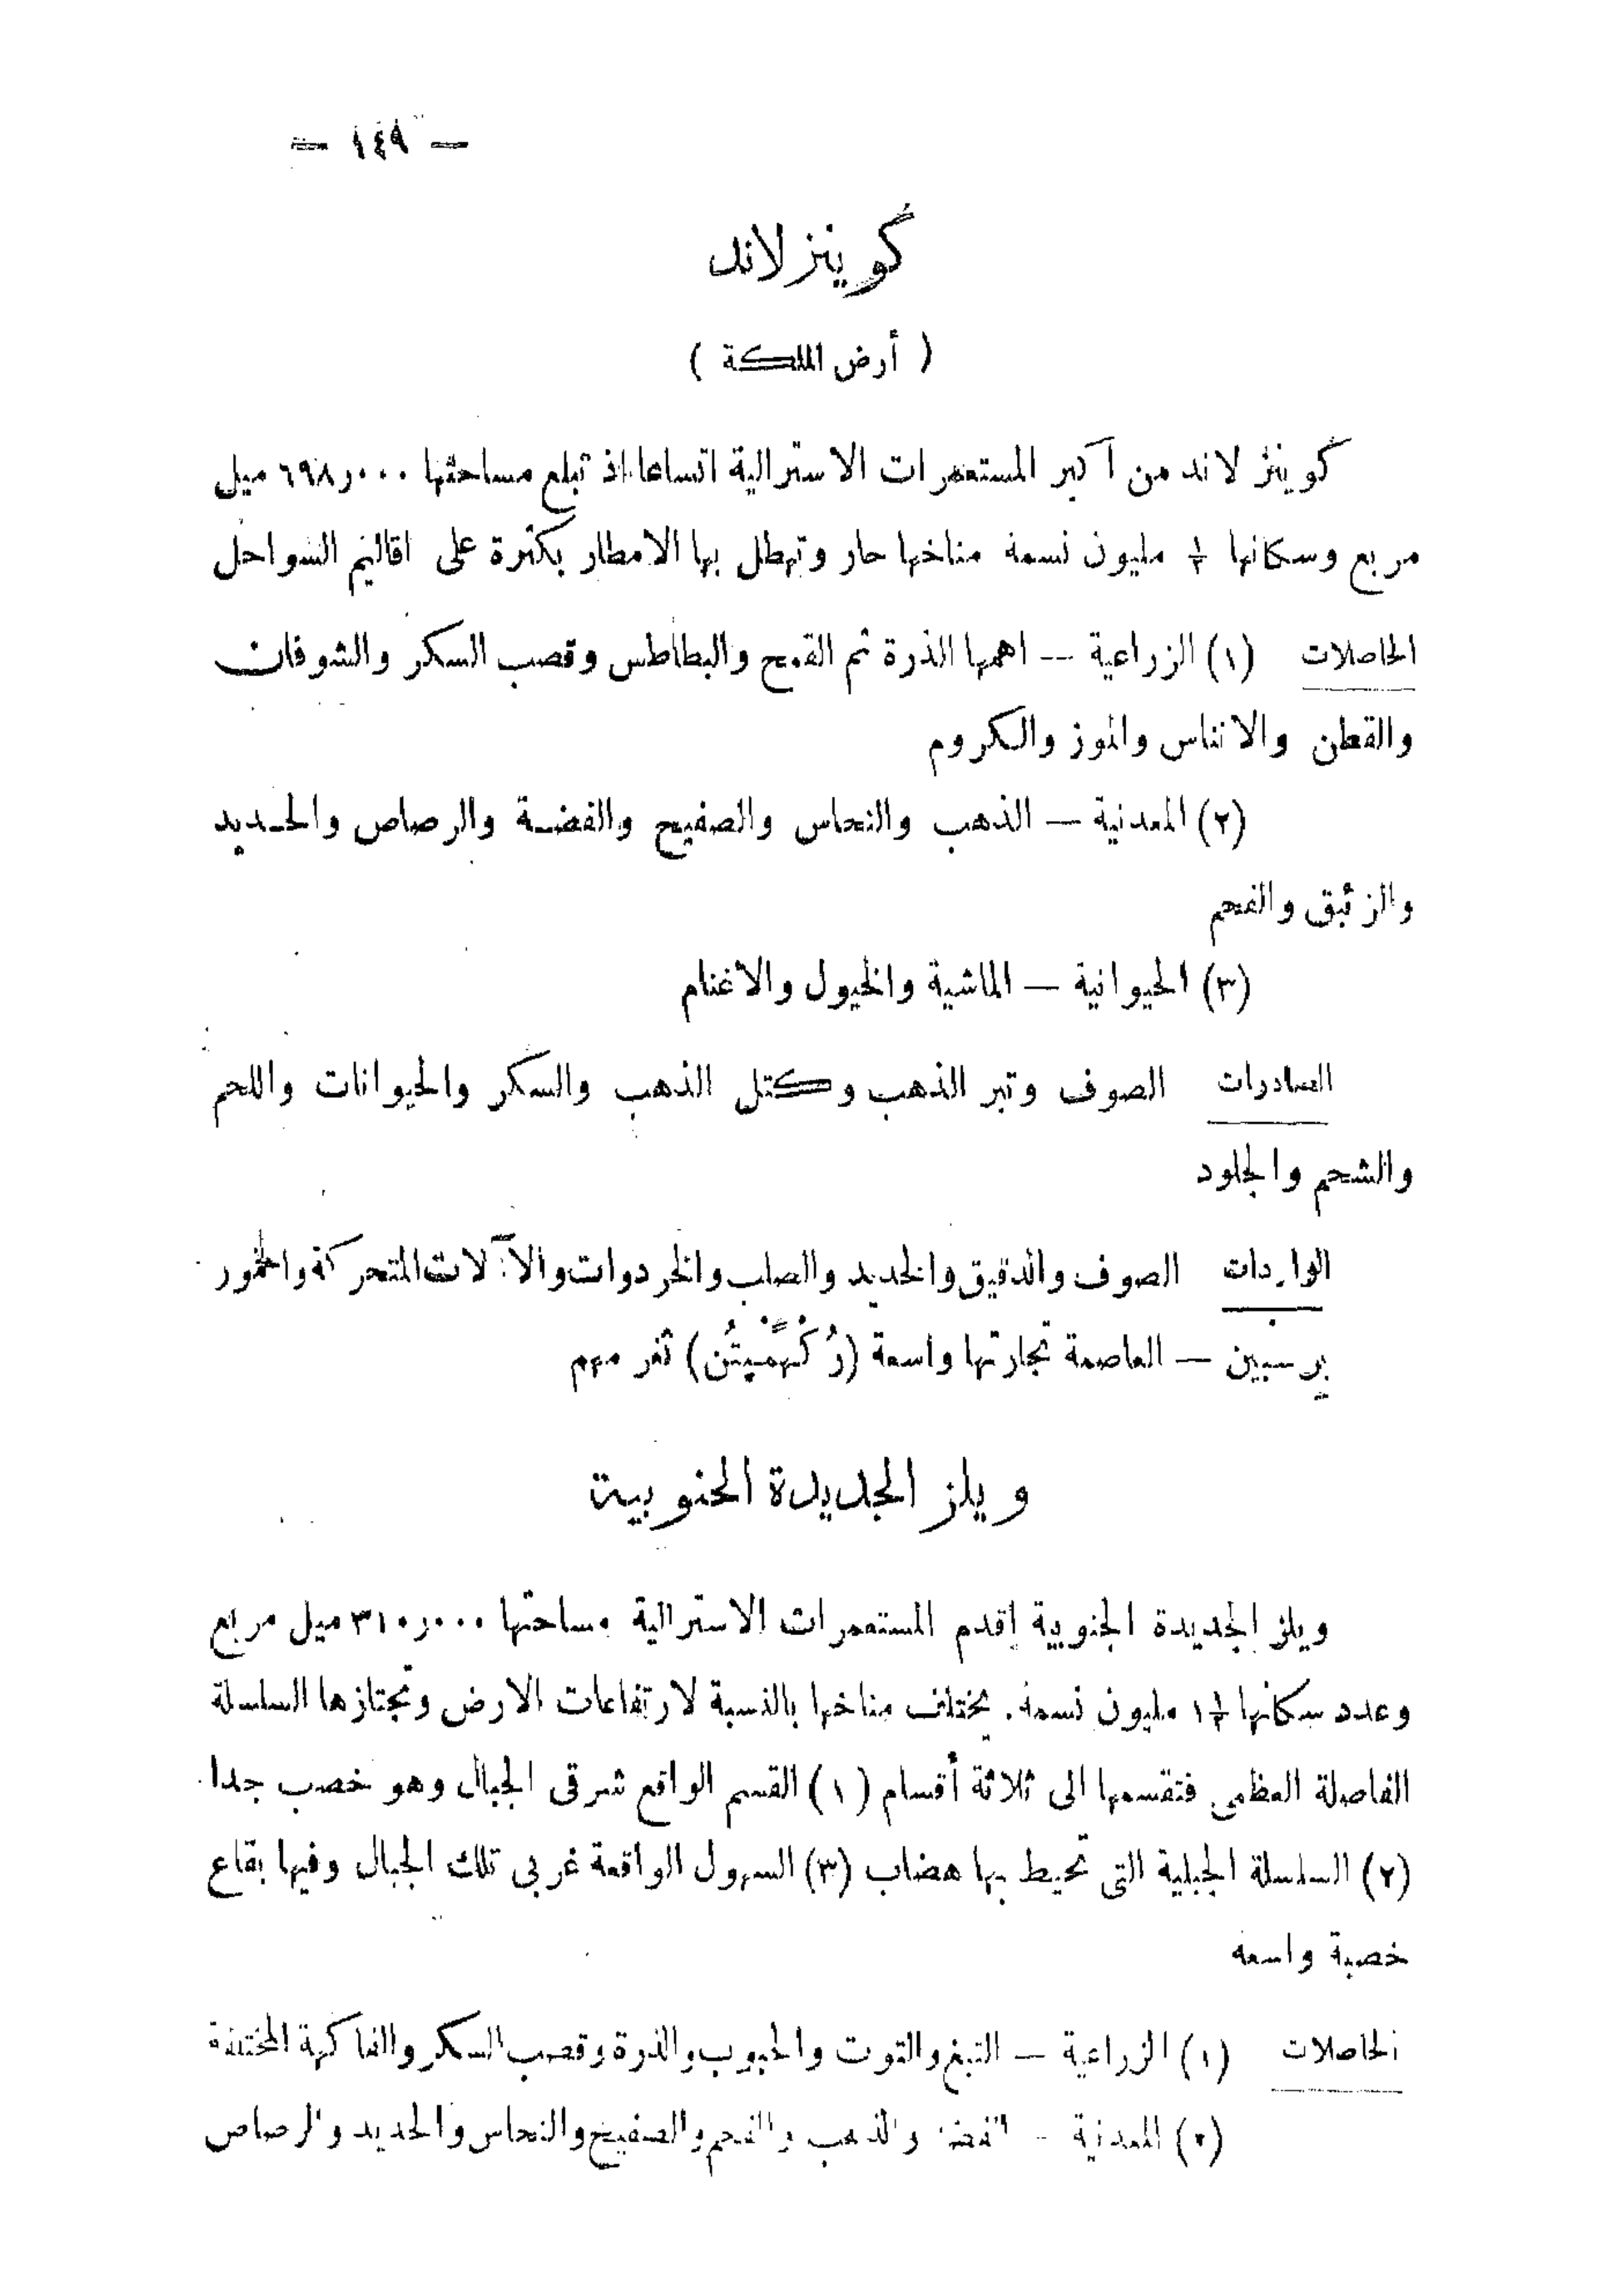 — ١٤٩ —
كوينز لاند
( أرض الملكة )
كوينز لاند من أكبر المستعمرات الاسترالية اتساعا إذ تبلغ مساحتها ٦٩٨٫٠٠٠ ميل
مربع وسكانها ½ مليون نسمة مناخها حار وتهطل بها الامطار بكثرة على اقاليم السواحل
الحاصلات (١) الزراعية — اهمها الذرة ثم القمح والبطاطس وقصب السكر والشوفان
والقطن والاناناس والموز والكروم
(٢) المعدنية — الذهب والنحاس والصفيح والفضة والرصاص والحديد
والزئبق والفحم
(٣) الحيوانية — الماشية والخيول والاغنام
الصادرات الصوف وتبر الذهب وكتل الذهب والسكر والحيوانات واللحم
والشحم والجلود
الواردات الصوف والدقيق والحديد والصلب والخردوات والآلات المتحركة والخمور
برسبين — العاصمة تجارتها واسعة (رُكْهَمْبِتُن) ثغر مهم
ويلز الجديدة الجنوبية
ويلز الجديدة الجنوبية اقدم المستعمرات الاسترالية مساحتها ٣١٠٫٠٠٠ ميل مربع
وعدد سكانها ١½ مليون نسمة. يختلف مناخها بالنسبة لارتفاعات الارض وتجتازها السلسلة
الفاصلة العظمى فتقسمها الى ثلاثة أقسام (١) القسم الواقع شرقى الجبال وهو خصب جدا
(٢) السلسلة الجبلية التى تحيط بها هضاب (٣) السهول الواقعة غربى تلك الجبال وفيها بقاع
خصبة واسعه
الحاصلات (١) الزراعية — التبغ والتوت والحبوب والذرة وقصب السكر والفاكهة المختلفة
(٢) المعدنية — الفضة والذهب والفحم والصفيح والنحاس والحديد والرصاص